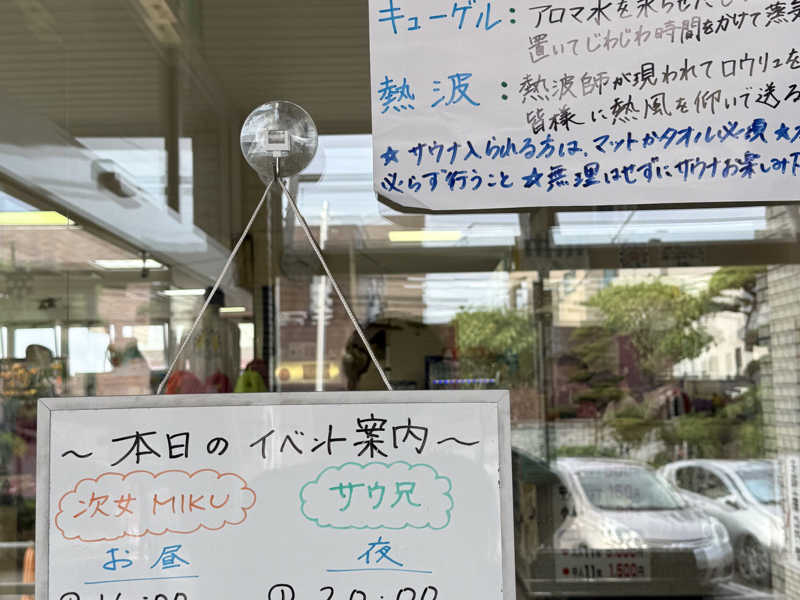 キューゲル：アロマ水を氷らせた
置いてじわじわ時間をかけて蒸気
熱波：熱波師が現われてロウリュを
皆様に熱風を仰いで送る
★サウナ入られる方は、マットかタオル必須★
必らず行うこと★無理はせずにサウナお楽しみ下
～本日のイベント案内～
次女MIKU サウ兄
お昼 夜
① ① 20:00
1,500円